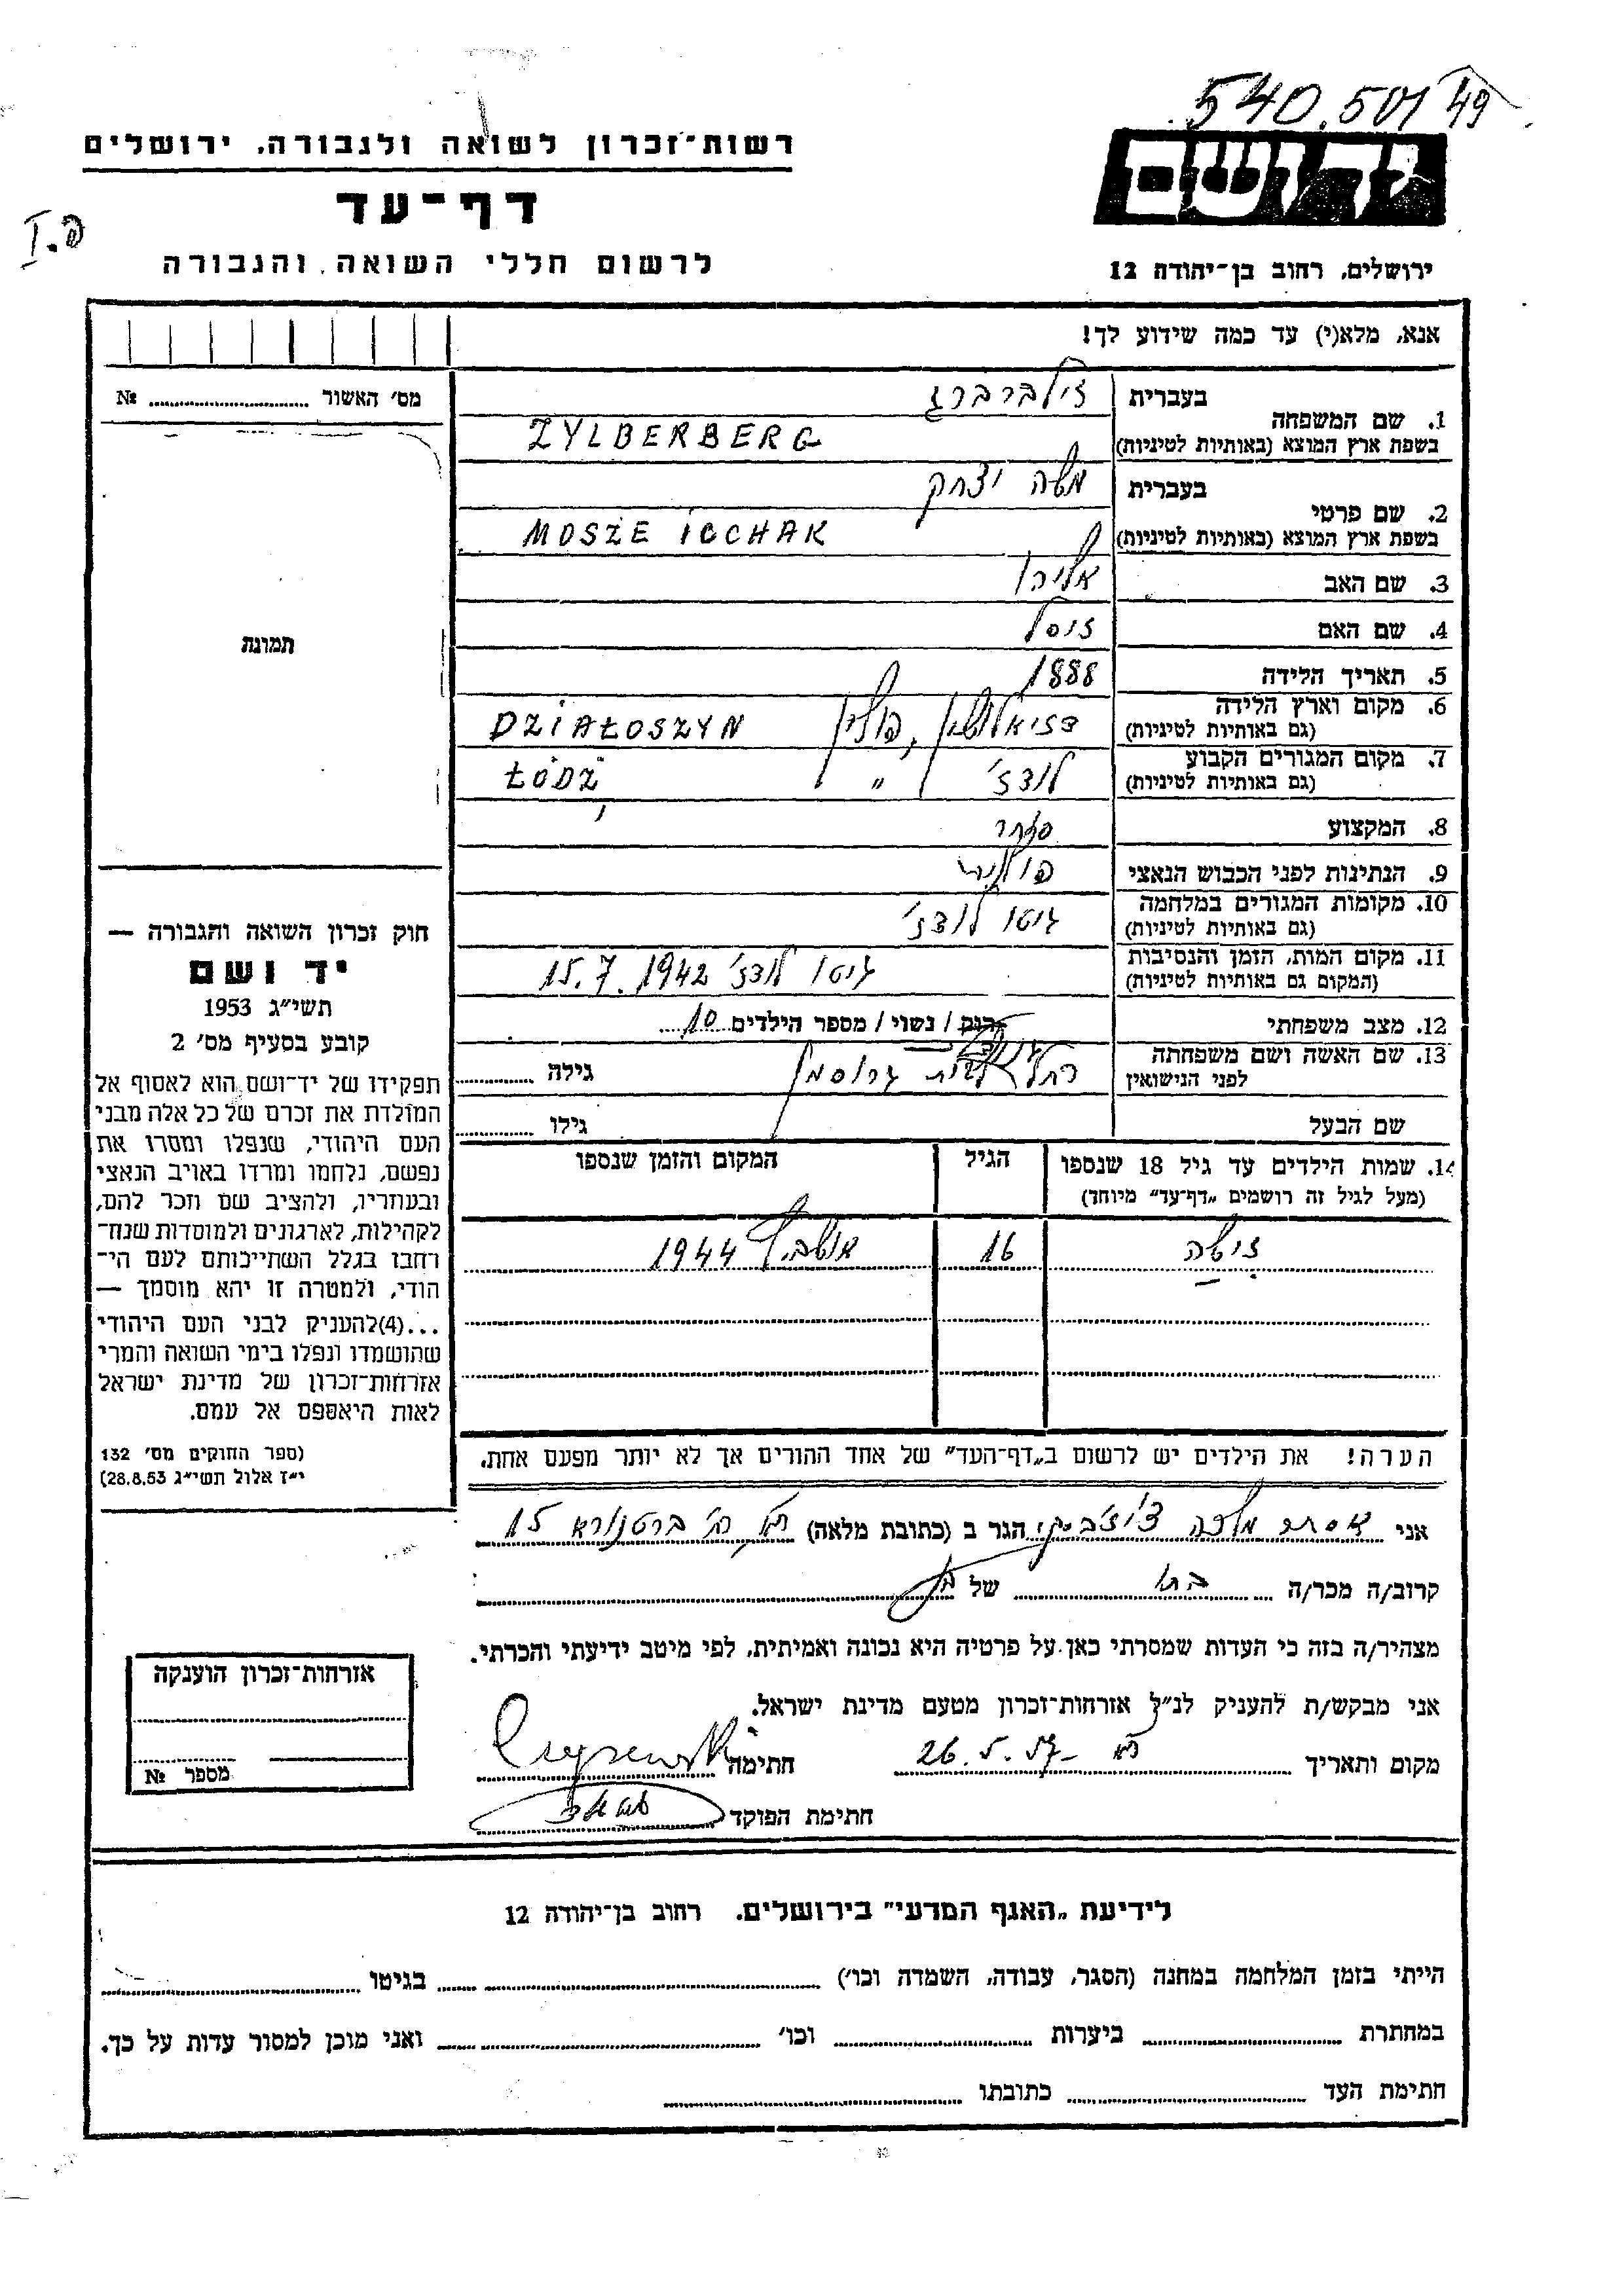 540.501 49
יד ושם
ירושלים, רחוב בן־יהודה 12
רשות־זכרון לשואה ולגבורה, ירושלים
דף־עד
לרשום חללי השואה והגבורה
פ.I
אנא, מלא(י) עד כמה שידוע לך!
1. שם המשפחה
בעברית זילברברג
בשפת ארץ המוצא (באותיות לטיניות) ZYLBERBERG
2. שם פרטי
בעברית משה יצחק
בשפת ארץ המוצא (באותיות לטיניות) MOSZE ICCHAK
3. שם האב
4. שם האם זיסל
5. תאריך הלידה 1888
6. מקום וארץ הלידה
(גם באותיות לטיניות) דזיאלושין, פולין DZIAŁOSZYN
7. מקום המגורים הקבוע
(גם באותיות לטיניות) לודז' " ŁÓDŹ
8. המקצוע סוחר
9. הנתינות לפני הכבוש הנאצי פולנית
10. מקומות המגורים במלחמה
(גם באותיות לטיניות) גיטו לודז'
11. מקום המות, הזמן והנסיבות
(המקום גם באותיות לטיניות) גיטו לודז' 15.7.1942
12. מצב משפחתי רוק / נשוי / מספר הילדים 10
13. שם האשה ושם משפחתה
לפני הנישואין רחל גרוסמן גילה
שם הבעל גילו
14. שמות הילדים עד גיל 18 שנספו
(מעל לגיל זה רושמים „דף־עד” מיוחד)
הגיל
המקום והזמן שנספו
זיסה 16 אושביץ 1944
הערה! את הילדים יש לרשום ב„דף־העד” של אחד ההורים אך לא יותר מפעם אחת.
מס' האשור №
תמונה
חוק זכרון השואה והגבורה —
יד ושם
תשי״ג 1953
קובע בסעיף מס' 2
תפקידו של יד־ושם הוא לאסוף אל
המולדת את זכרם של כל אלה מבני
העם היהודי, שנפלו ומסרו את
נפשם, נלחמו ומרדו באויב הנאצי
ובעוזריו, ולהציב שם וזכר להם,
לקהילות, לארגונים ולמוסדות שנח־
רבו בגלל השתייכותם לעם הי־
הודי, ולמטרה זו יהא מוסמך —
...(4)להעניק לבני העם היהודי
שהושמדו ונפלו בימי השואה והמרי
אזרחות־זכרון של מדינת ישראל
לאות היאספם אל עמם.
(ספר החוקים מס' 132
י״ז אלול תשי״ג 28.8.53)
אני אסתר מלכה הגר ב (כתובת מלאה) ת"א רח' ברטנורא 15
קרוב/ה מכר/ה בתו של
מצהיר/ה בזה כי העדות שמסרתי כאן על פרטיה היא נכונה ואמיתית, לפי מיטב ידיעתי והכרתי.
אני מבקש/ת להעניק לנ״ל אזרחות־זכרון מטעם מדינת ישראל.
מקום ותאריך ת"א 26.5.57 חתימה
חתימת הפוקד
אזרחות־זכרון הוענקה
מספר №
לידיעת „האגף המדעי” בירושלים. רחוב בן־יהודה 12
הייתי בזמן המלחמה במחנה (הסגר, עבודה, השמדה וכו') בגיטו
במחתרת ביערות וכו' ואני מוכן למסור עדות על כך.
חתימת העד כתובתו